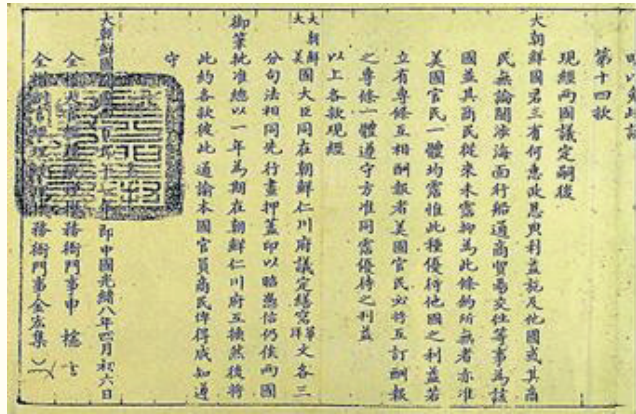 第十四款
現經兩國議定嗣後
大朝鮮國君主有何惠政恩典利益施及他國或其商
民無論關涉海面行船通商貿易交往等事為該
國並其商民從來未霑抑為此條約所無者亦准
美國官民一體均霑惟此種優待他國之利益若
立有專條互相酬報者美國官民必將互訂酬報
之專條一體遵守方准同霑優待之利益
以上各款現經
大朝鮮大美國大臣同在朝鮮仁川府議定繕寫華洋文各三
分句法相同先行畫押蓋印以昭憑信仍俟兩國
御筆批准總以一年為期在朝鮮仁川府互換然後將
此約各款彼此通諭本國官員商民俾得咸知遵
守
大朝鮮國開國四百九十一年即中國光緒八年四月初六日
全權大官經理統機務衙門事申櫶
全權副官經理統機務衙門事金宏集